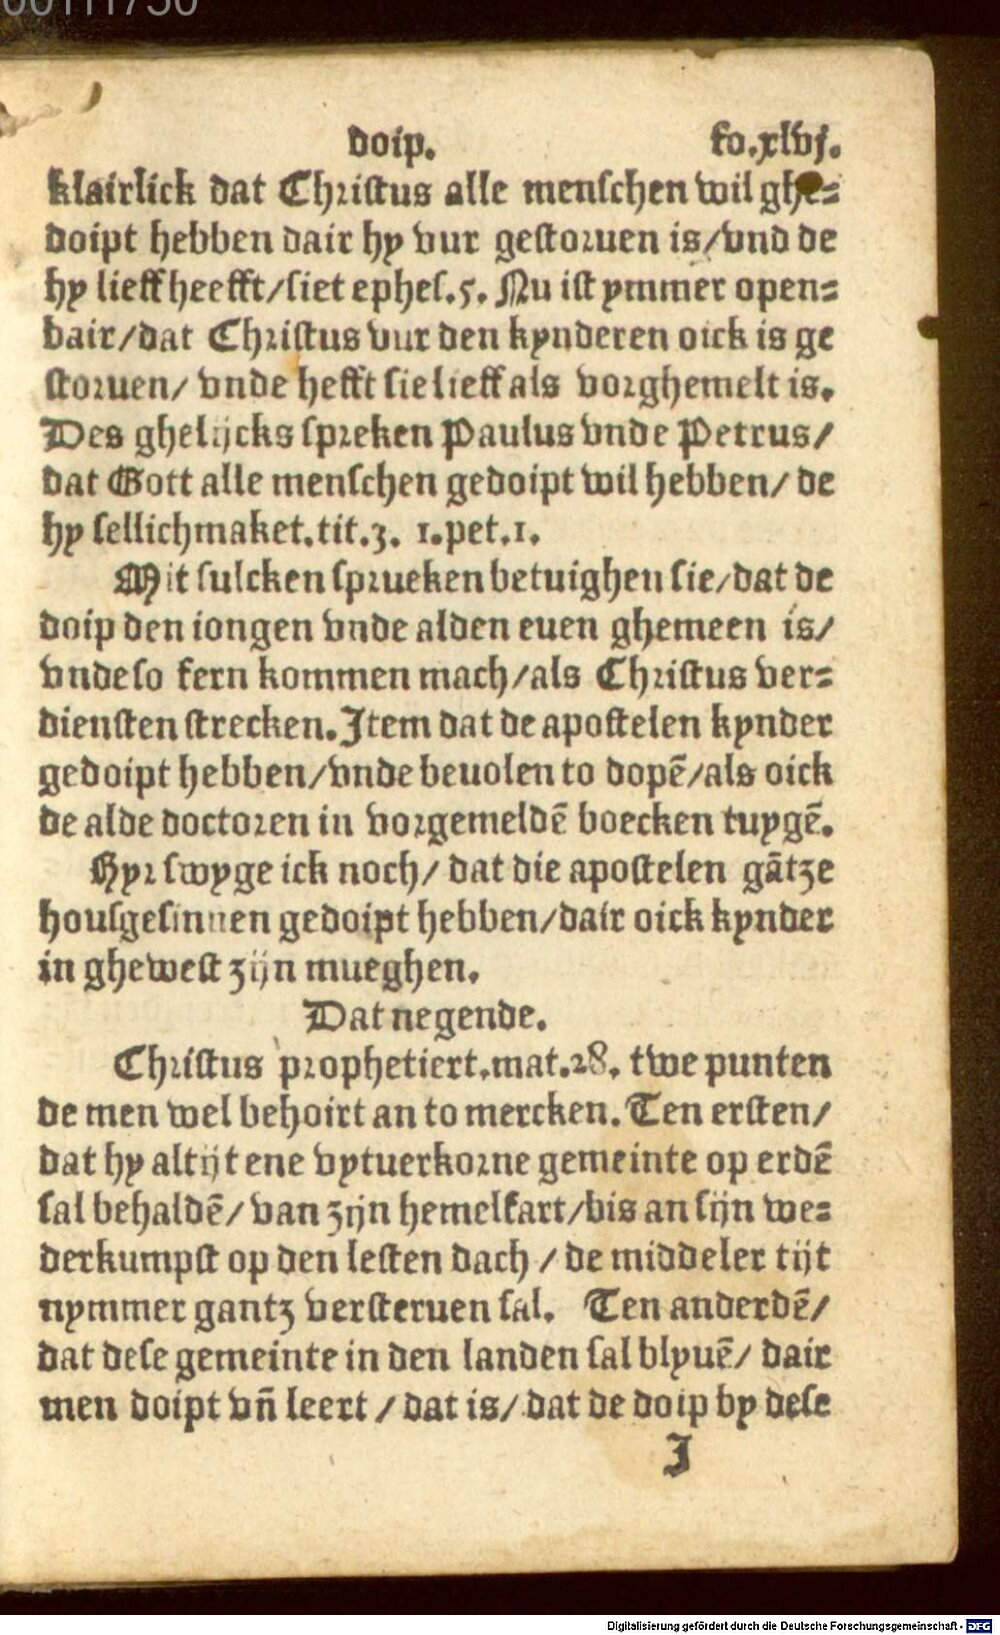 doip. fo.xlvj.
klairlick dat Christus alle menschen wil ghe⸗
doipt hebben dair hy vur gestoruen is/vnd de
hy lieff heefft/siet ephes.5. Nu ist ymmer open⸗
bair/dat Christus vur den kynderen oick is ge
storuen/ vnde hefft sie lieff als vorghemelt is.
Des ghelijcks spreken Paulus vnde Petrus/
dat Gott alle menschen gedoipt wil hebben/ de
hy sellichmaket.tit.3. 1.pet.1.
Mit sulcken sprueken betuighen sie/dat de
doip den iongen vnde alden euen ghemeen is/
vnde so fern kommen mach/als Christus ver⸗
diensten strecken. Item dat de apostelen kynder
gedoipt hebben/vnde beuolen to dopē/als oick
de alde doctoren in vorgemeldē boecken tuygē.
Hyr swyge ick noch/ dat die apostelen gātze
housgesinnen gedoipt hebben/dair oick kynder
in ghewest zijn mueghen.
Dat negende.
Christus prophetiert.mat.28. twe punten
de men wel behoirt an to mercken. Ten ersten/
dat hy altijt ene vytuerkorne gemeinte op erdē
sal behaldē/ van zijn hemelfart/bis an sijn we⸗
derkumpst op den lesten dach / de middeler tijt
nymmer gantz versteruen sal. Ten anderdē/
dat dese gemeinte in den landen sal blyuē/ dair
men doipt vñ leert / dat is/ dat de doip by dese
J
Digitalisierung gefördert durch die Deutsche Forschungsgemeinschaft - DFG